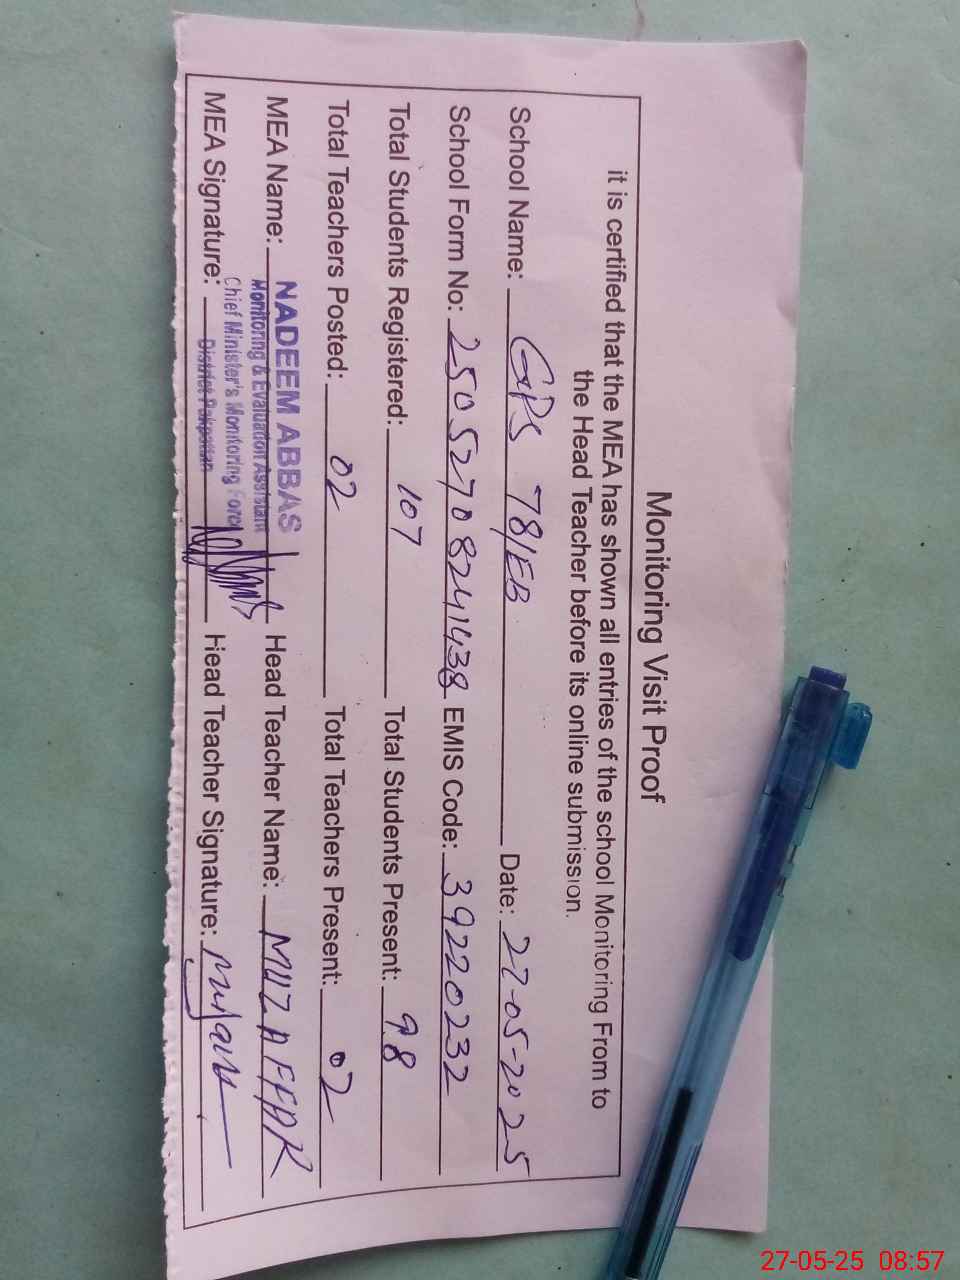 Monitoring Visit Proof
it is certified that the MEA has shown all entries of the school Monitoring From to
the Head Teacher before its online submission.
School Name: GPS 78/EB Date: 27-05-2025
School Form No: 25052708241438 EMIS Code: 39220232
Total Students Registered: 107 Total Students Present: 98
Total Teachers Posted: 02 Total Teachers Present: 02
MEA Name: NADEEM ABBAS Head Teacher Name: MUZAFFAR
Monitoring & Evaluation Assistant
Chief Minister's Monitoring Force
MEA Signature: District Pakpattan Head Teacher Signature:
27-05-25 08:57